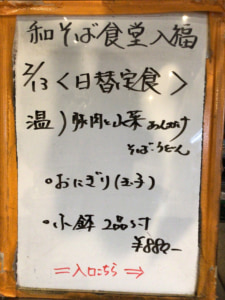 和そば食堂入福
2/13 <日替定食>
温) 豚肉と山菜あんかけ
そば・うどん
•おにぎり(玉子)
•小鉢 2品付
¥880-
⇒入口こちら⇒